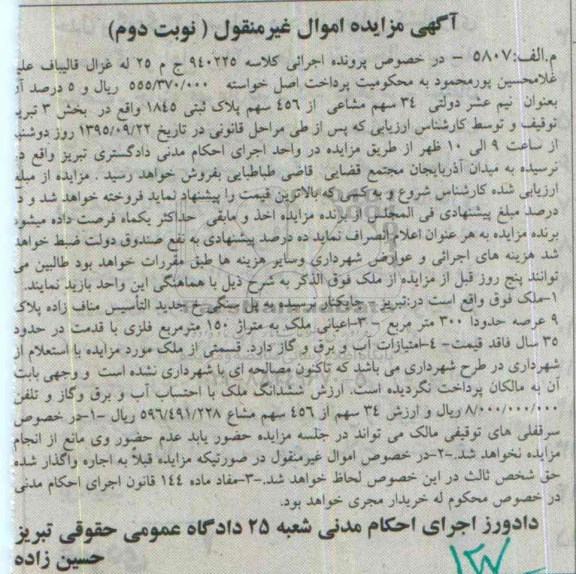 آگهی مزایده اموال غیرمنقول ( نوبت دوم)
م.الف:۵۸۰۷ - در خصوص پرونده اجرائی کلاسه ۹۴۰۲۲۵ ج م ۲۵ له غزال قالیباف علیه
غلامحسین پورمحمود به محکومیت پرداخت اصل خواسته ۵۵۵/۳۷۰/۰۰۰ ریال و ۵ درصد آن
بعنوان نیم عشر دولتی ۳۴ سهم مشاعی از ۴۵۶ سهم پلاک ثبتی ۱۸۴۵ واقع در بخش ۳ تبریز
توقیف و توسط کارشناس ارزیابی که پس از طی مراحل قانونی در تاریخ ۱۳۹۵/۰۹/۲۲ روز دوشنبه
از ساعت ۹ الی ۱۰ ظهر از طریق مزایده در واحد اجرای احکام مدنی دادگستری تبریز واقع در
نرسیده به میدان آذربایجان مجتمع قضایی قاضی طباطبایی بفروش خواهد رسید . مزایده از مبلغ
ارزیابی شده کارشناس شروع و به کسی که بالاترین قیمت را پیشنهاد نماید فروخته خواهد شد و ده
درصد مبلغ پیشنهادی فی المجلس از برنده مزایده اخذ و مابقی حداکثر یکماه فرصت داده میشود
برنده مزایده به هر عنوان اعلام انصراف نماید ده درصد پیشنهادی به نفع صندوق دولت ضبط خواهد
شد هزینه های اجرائی و عوارض شهرداری وسایر هزینه ها طبق مقررات خواهد بود طالبین می
توانند پنج روز قبل از مزایده از ملک فوق الذکر به شرح ذیل با هماهنگی این واحد بازید نمایند.
۱-ملک فوق واقع است در:تبریز - چایکنار نرسیده به پل سنگی خ جدید التأسیس مناف زاده پلاک
۹ عرصه حدودا ۳۰۰ متر مربع -۳-اعیانی ملک به متراژ ۱۵۰ مترمربع فلزی با قدمت در حدود
۳۵ سال فاقد قیمت- ۴-امتیازات آب و برق و گاز دارد. قسمتی از ملک مورد مزایده با استعلام از
شهرداری در طرح شهرداری می باشد که تاکنون مصالحه ای با شهرداری نشده است و وجهی بابت
آن به مالکان پرداخت نگردیده است. ارزش ششدانگ ملک با احتساب آب و برق وگاز و تلفن
۸/۰۰۰/۰۰۰/۰۰۰ ریال و ارزش ۳۴ سهم از ۴۵۶ سهم مشاع ۵۹۶/۴۹۱/۲۲۸ ریال -۱-در خصوص
سرقفلی های توقیفی مالک می تواند در جلسه مزایده حضور یابد عدم حضور وی مانع از انجام
مزایده نخواهد شد.-۲-در خصوص اموال غیرمنقول در صورتیکه مزایده قبلاً به اجاره واگذار شده
حق شخص ثالث در این خصوص لحاظ خواهد شد.-۳-مفاد ماده ۱۴۴ قانون اجرای احکام مدنی
در خصوص محکوم له خریدار مجری خواهد بود.
دادورز اجرای احکام مدنی شعبه ۲۵ دادگاه عمومی حقوقی تبریز
حسین زاده